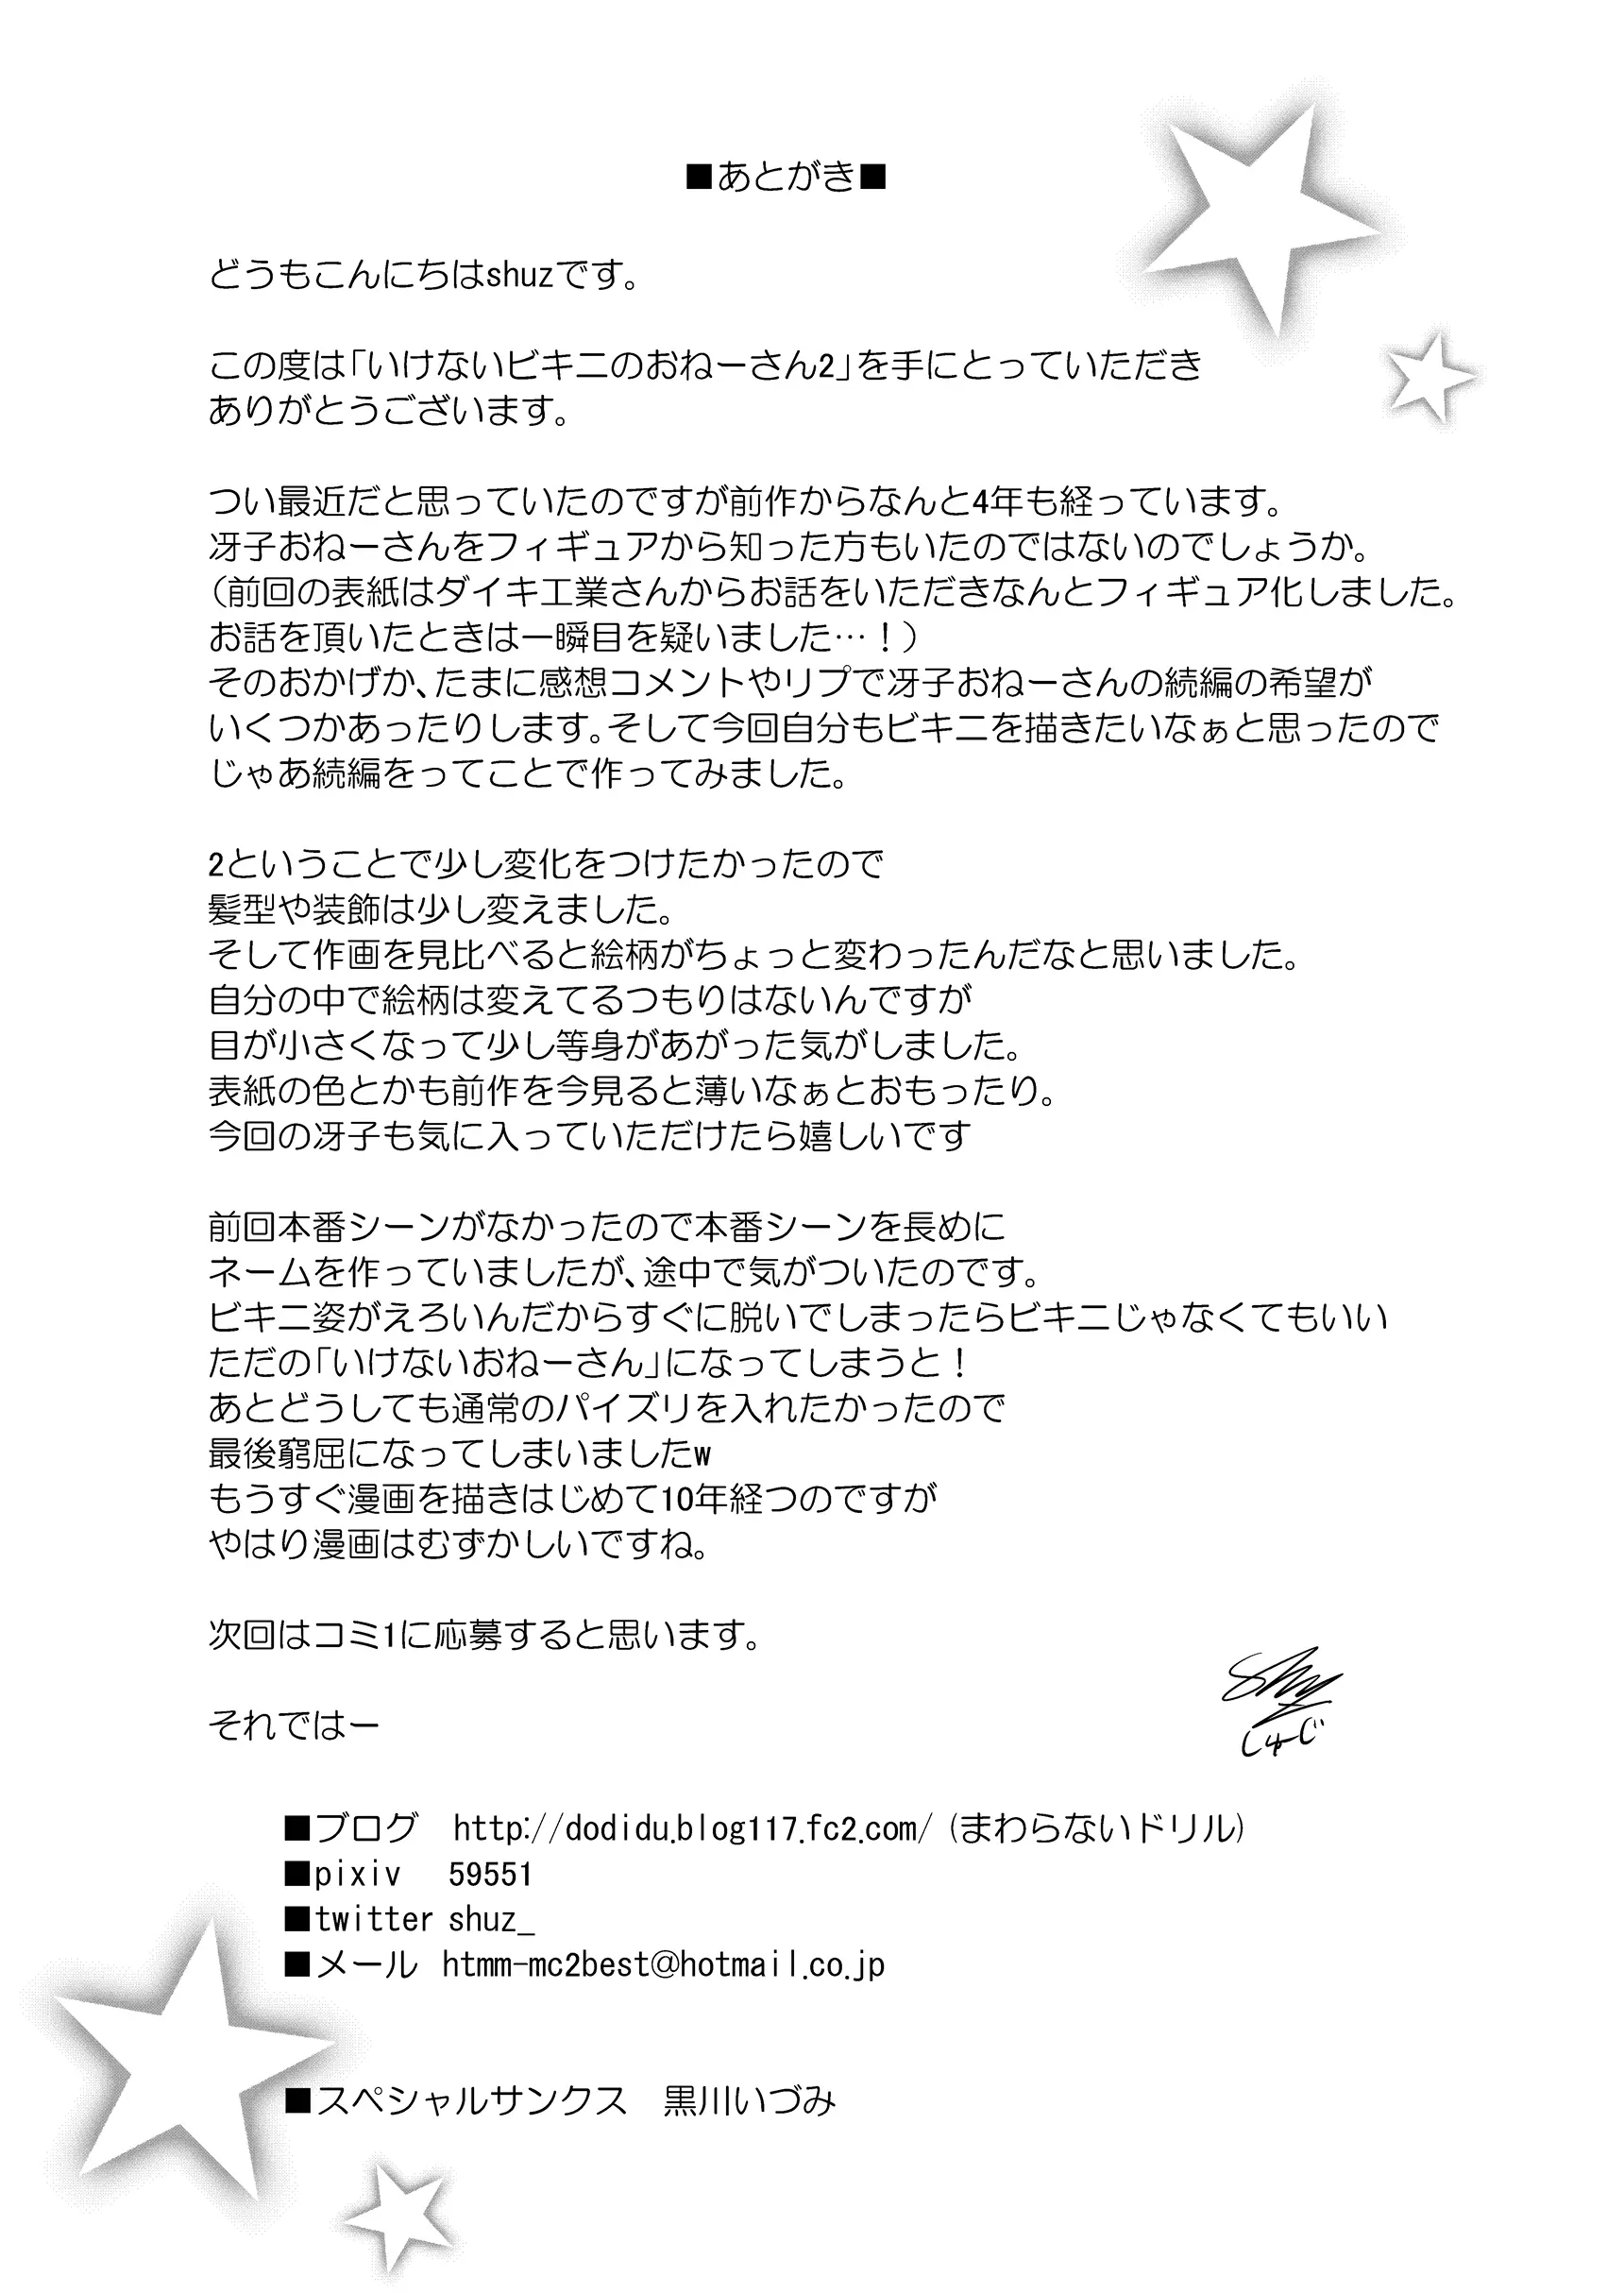 ■あとがき■
どうもこんにちはshuzです。
この度は「いけないビキニのおねーさん2」を手にとっていただき
ありがとうございます。
つい最近だと思っていたのですが前作からなんと4年も経っています。
冴子おねーさんをフィギュアから知った方もいたのではないのでしょうか。
（前回の表紙はダイキ工業さんからお話をいただきなんとフィギュア化しました。
お話を頂いたときは一瞬目を疑いました…！）
そのおかげか、たまに感想コメントやリプで冴子おねーさんの続編の希望が
いくつかあったりします。そして今回自分もビキニを描きたいなぁと思ったので
じゃあ続編をってことで作ってみました。
2ということで少し変化をつけたかったので
髪型や装飾は少し変えました。
そして作画を見比べると絵柄がちょっと変わったんだなと思いました。
自分の中で絵柄は変えてるつもりはないんですが
目が小さくなって少し等身があがった気がしました。
表紙の色とかも前作を今見ると薄いなぁとおもったり。
今回の冴子も気に入っていただけたら嬉しいです
前回本番シーンがなかったので本番シーンを長めに
ネームを作っていましたが、途中で気がついたのです。
ビキニ姿がえろいんだからすぐに脱いでしまったらビキニじゃなくてもいい
ただの「いけないおねーさん」になってしまうと！
あとどうしても通常のパイズリを入れたかったので
最後窮屈になってしまいましたw
もうすぐ漫画を描きはじめて10年経つのですが
やはり漫画はむずかしいですね。
次回はコミ1に応募すると思います。
それではー
shuz
しゅーじ
■ブログ　http://dodidu.blog117.fc2.com/（まわらないドリル）
■pixiv　59551
■twitter shuz_
■メール　htmm-mc2best@hotmail.co.jp
■スペシャルサンクス　黒川いづみ